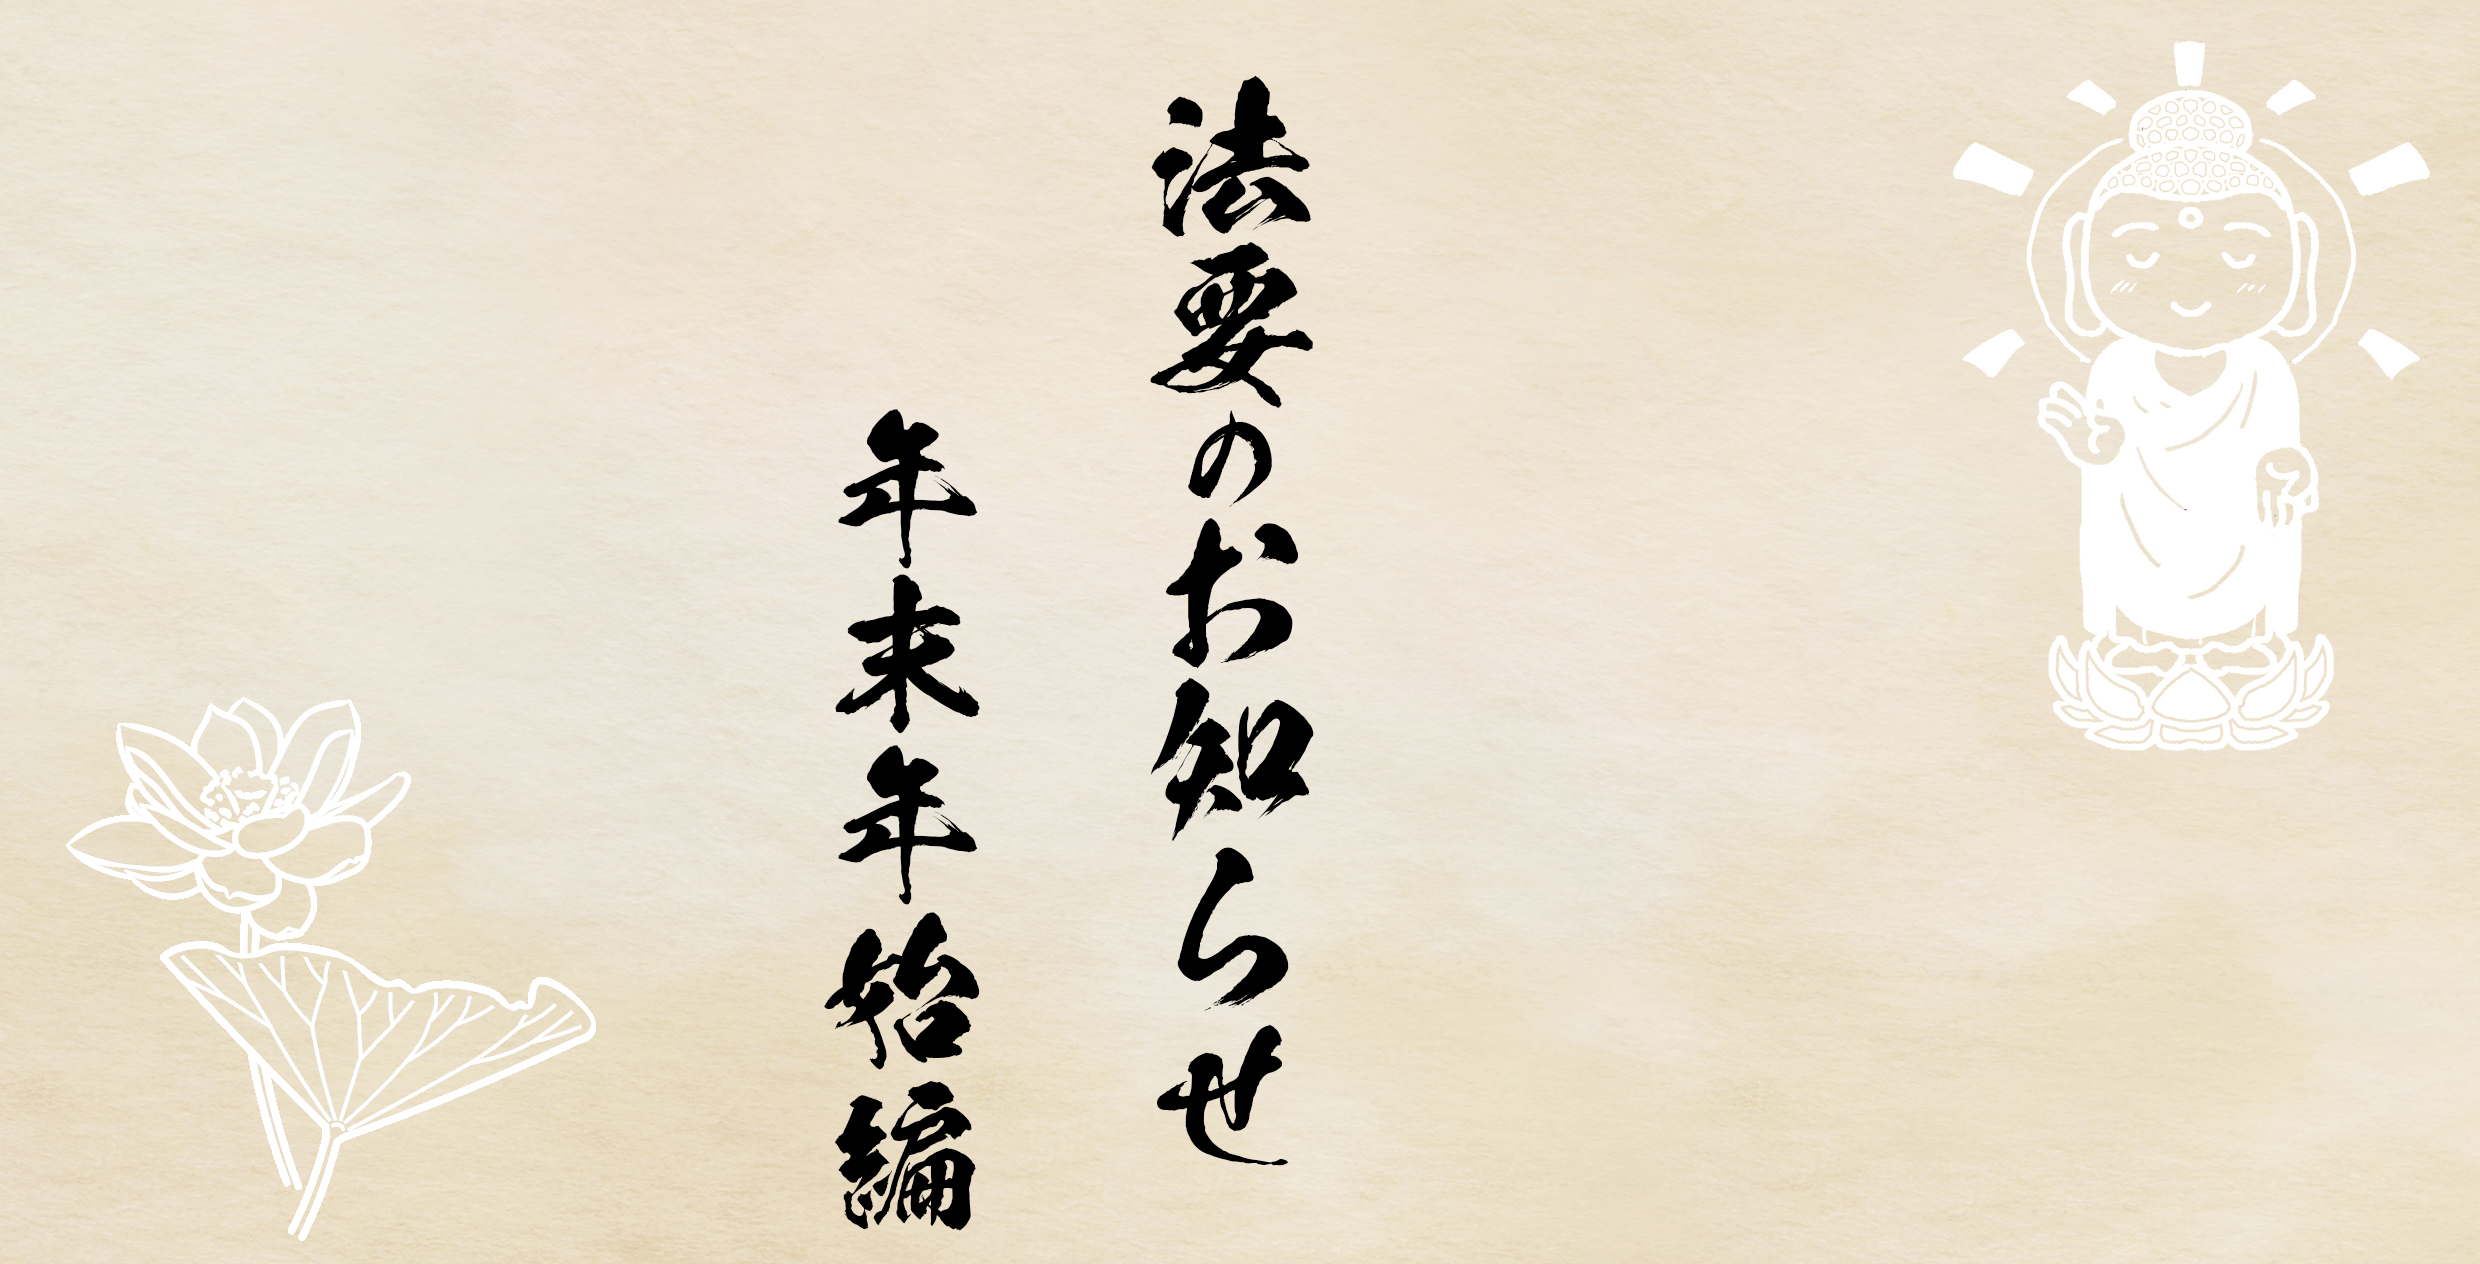 法要のお知らせ
年末年始編